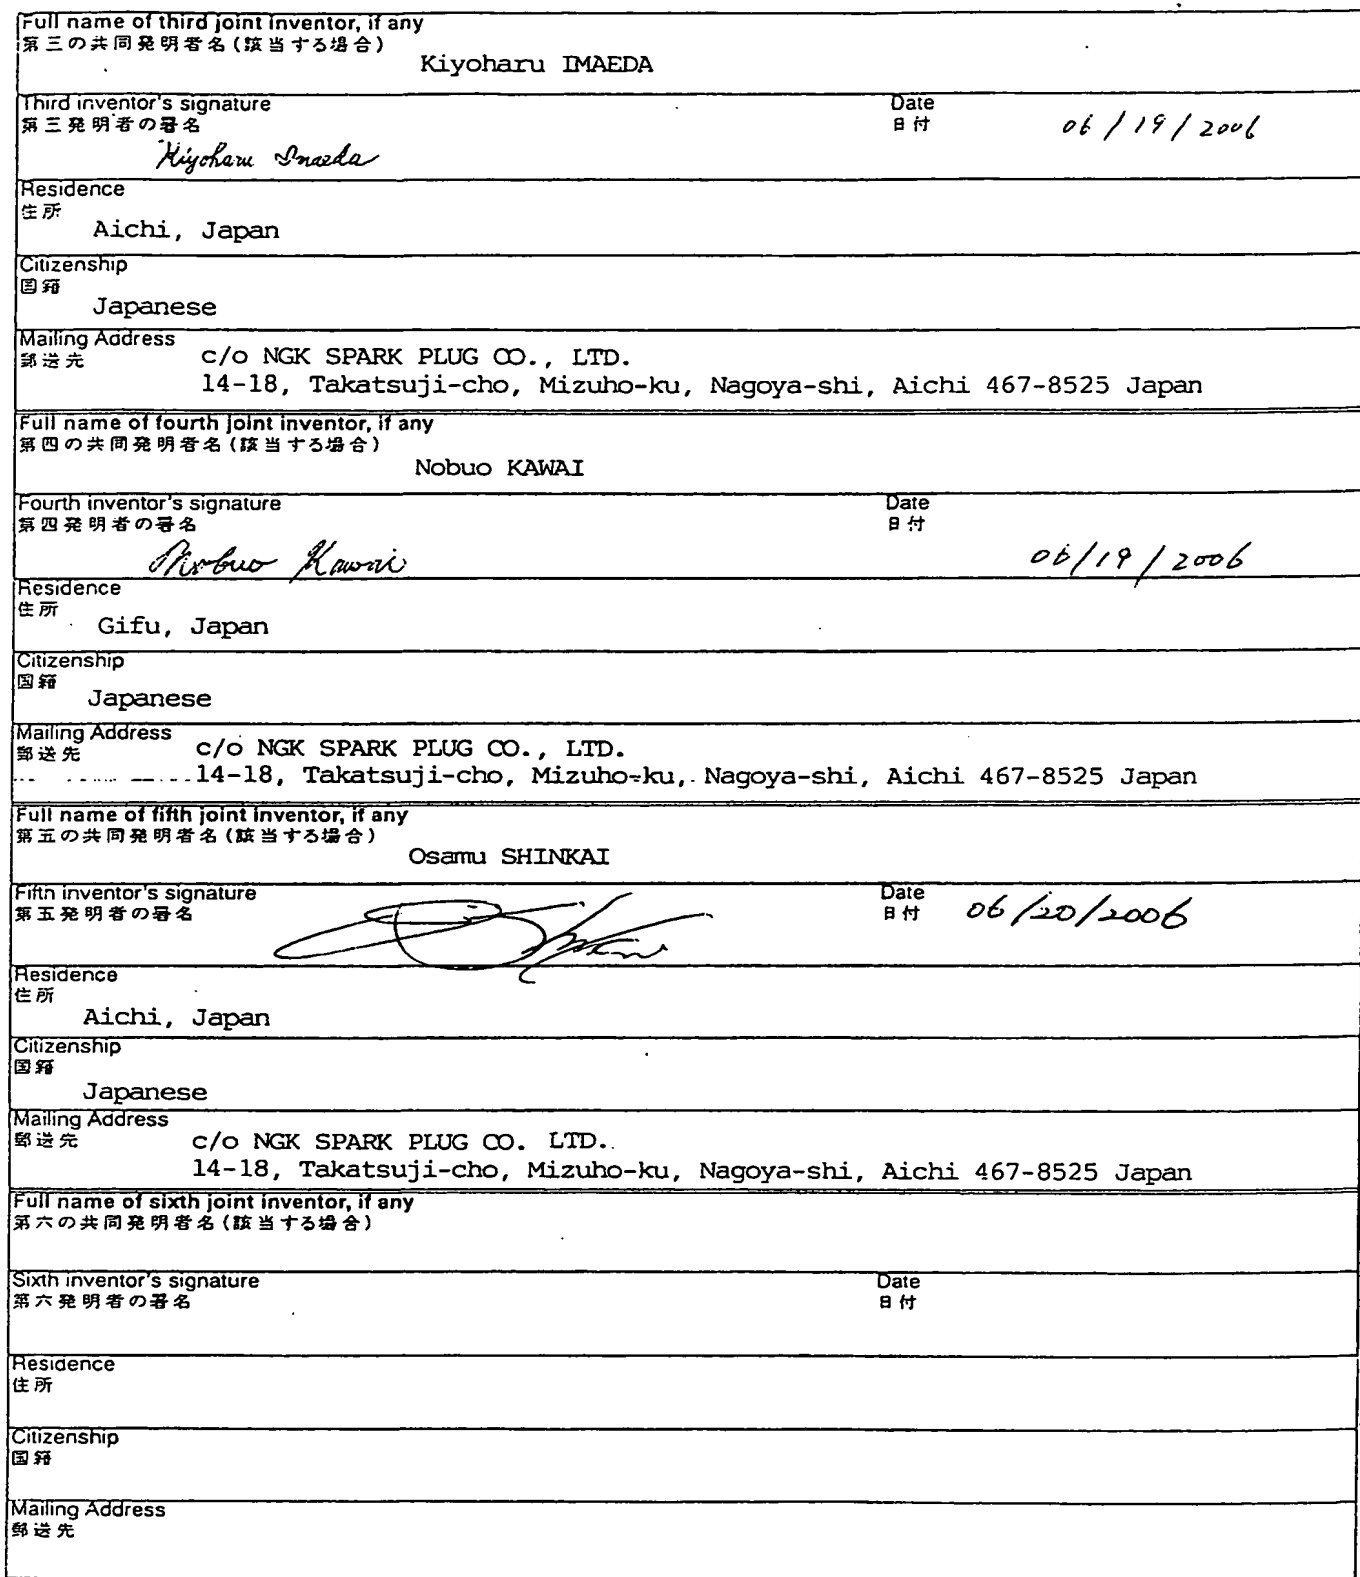 Full name of third joint inventor, if any
第三の共同発明者名(該当する場合)
Kiyoharu IMAEDA
Third inventor's signature
Date
第三発明者の署名
日付
06/19/2006
Kiyoharu Imaeda
Residence
住所
Aichi, Japan
Citizenship
国籍
Japanese
Mailing Address
郵送先
c/o NGK SPARK PLUG CO., LTD.
14-18, Takatsuji-cho, Mizuho-ku, Nagoya-shi, Aichi 467-8525 Japan
Full name of fourth joint inventor, if any
第四の共同発明者名(該当する場合)
Nobuo KAWAI
Fourth inventor's signature
Date
第四発明者の署名
日付
Nobuo Kawai
06/19/2006
Residence
住所
Gifu, Japan
Citizenship
国籍
Japanese
Mailing Address
郵送先
c/o NGK SPARK PLUG CO., LTD.
14-18, Takatsuji-cho, Mizuho-ku, Nagoya-shi, Aichi 467-8525 Japan
Full name of fifth joint inventor, if any
第五の共同発明者名(該当する場合)
Osamu SHINKAI
Fifth inventor's signature
Date
第五発明者の署名
日付
06/20/2006
Residence
住所
Aichi, Japan
Citizenship
国籍
Japanese
Mailing Address
郵送先
c/o NGK SPARK PLUG CO. LTD.
14-18, Takatsuji-cho, Mizuho-ku, Nagoya-shi, Aichi 467-8525 Japan
Full name of sixth joint inventor, if any
第六の共同発明者名(該当する場合)
Sixth inventor's signature
Date
第六発明者の署名
日付
Residence
住所
Citizenship
国籍
Mailing Address
郵送先